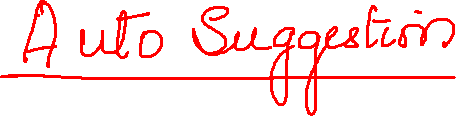 Auto Suggestion